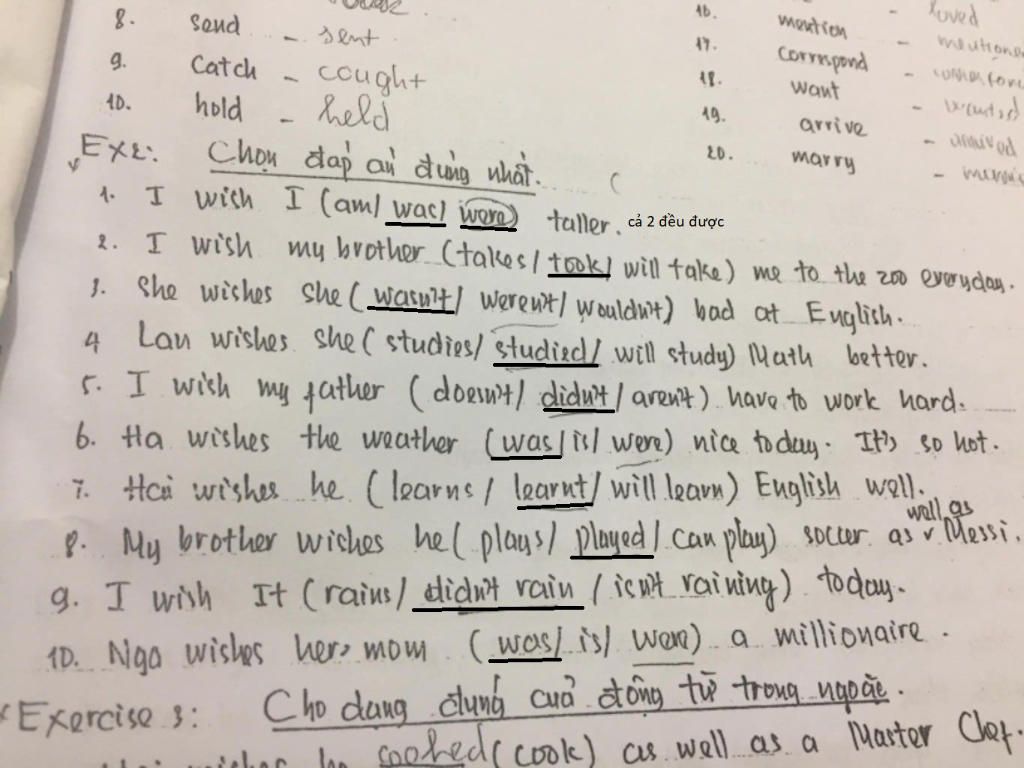 8. send - sent
9. Catch - cought
10. hold - held
16. - loved
17. mention - mentione
18. corrnspond
19. want - wanted
20. arrive - arrived
marry
Ex2: Chọn đáp án đúng nhất.
1. I wish I (am/ was/ were) taller. cả 2 đều được
2. I wish my brother (takes/ took/ will take) me to the zoo everyday.
3. She wishes she (wasn't/ weren't/ wouldn't) bad at English.
4 Lan wishes she (studies/ studied/ will study) Math better.
5. I wish my father (doesn't/ didn't/ aren't) have to work hard.
6. Ha wishes the weather (was/ is/ were) nice today. It's so hot.
7. Hoa wishes he (learns/ learnt/ will learn) English well.
8. My brother wishes he (plays/ played/ can play) soccer as well as Messi.
9. I wish It (rains/ didn't rain / isn't raining) today.
10. Nga wishes her mom (was/ is/ were) a millionaire.
Exercise 3: Cho dạng đúng của động từ trong ngoặc.
cooked (cook) as well as a Master Chef.